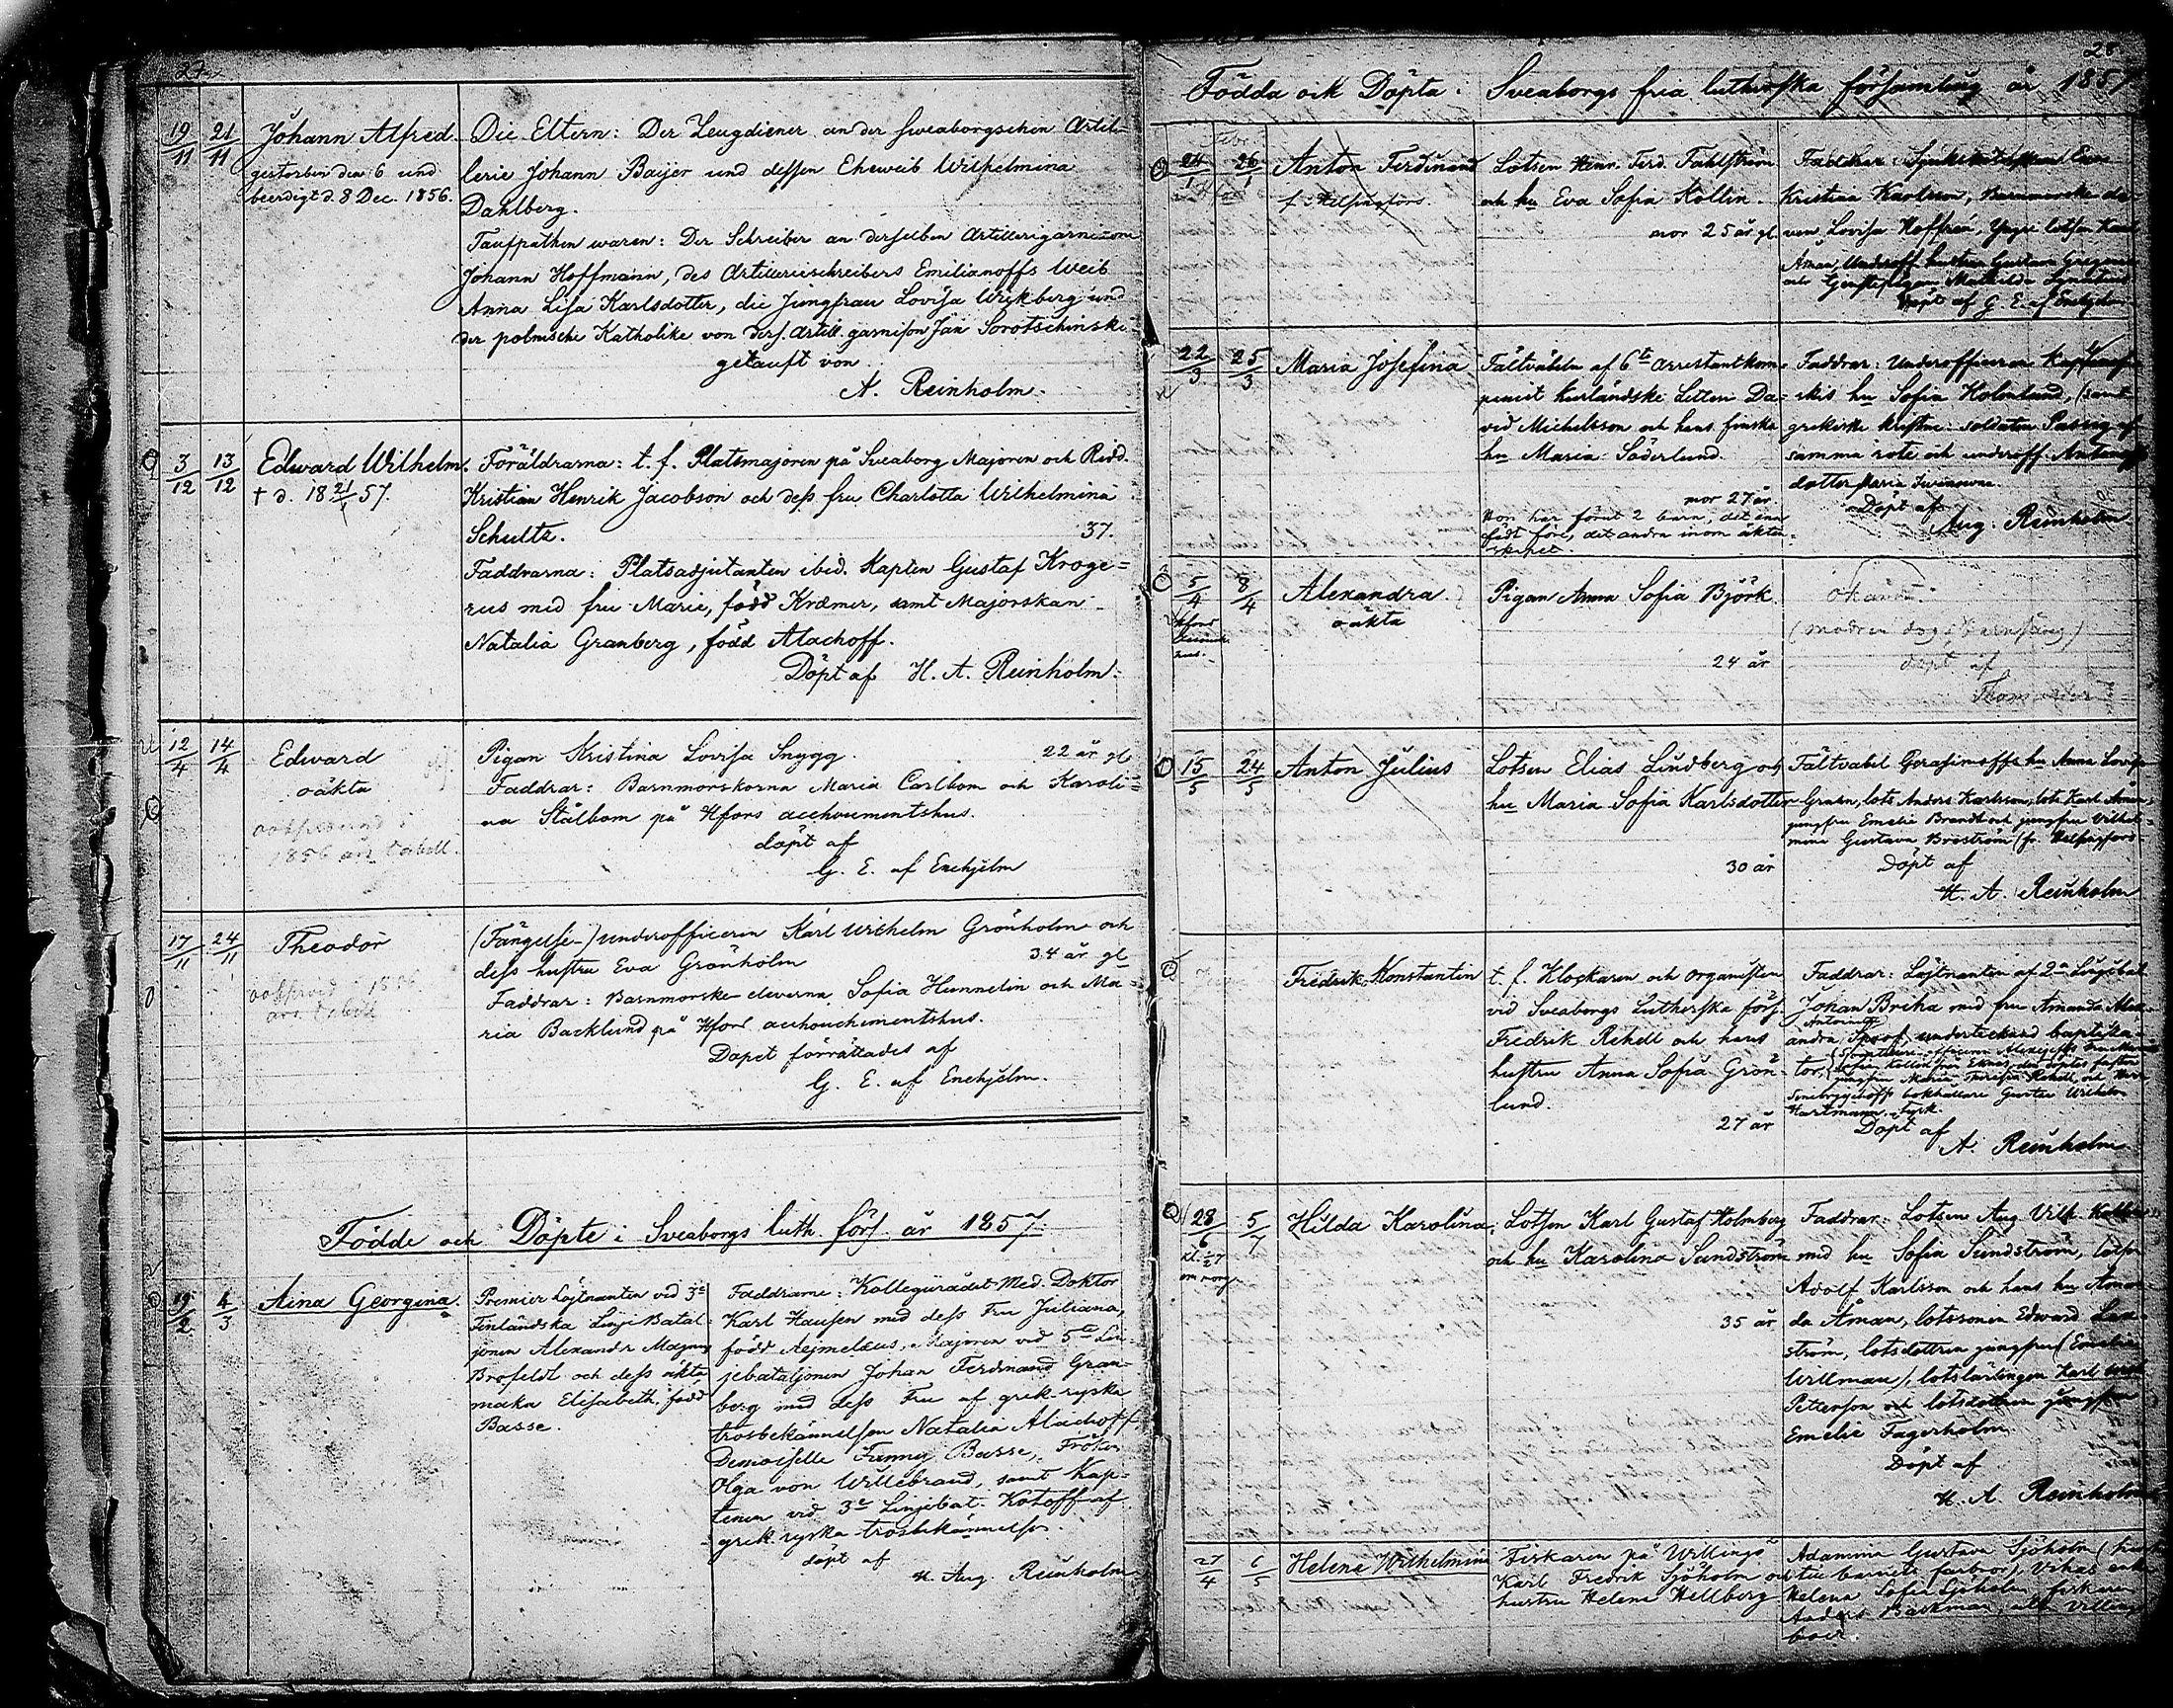 27
19/11 21/11 Johann Alfred. Die Eltern: Der Zeugdiener an der Sweaborgschen Artil-
gestorben den 6 und lerie Johann Baijer und dessen Eheweib Wilhelmina
beerdigt d. 8 Dec. 1856. Dahlberg.
Taufpathen waren: Der Schreiber an derselben Artillerigarnizone
Johann Hoffmann, des Artillerieschreibers Emilianoffs Weib
Anna Lisa Karlsdotter, die Jungfrau Lovisa Wikberg und
der polnische Katholike von ders. Artill. garnison Jan Sorotschinski
getauft von
A. Reinholm.
3/12 13/12 Edward Wilhelm. Föräldrarna: t. f. Platsmajoren på Sveaborg Majoren och Ridd.
† d. 18 21/1 57. Kristian Henrik Jacobson och dess fru Charlotta Wilhelmina
Schultz. 37.
Faddrarna: Platsadjutanten ibid. Kapten Gustaf Kroge=
rus med fru Marie, född Kræmer, samt Majorskan
Natalia Granberg, född Alachoff.
Döpt af H. A. Reinholm.
12/4 14/4 Edward Pigan Kristina Lovisa Snygg. 22 år gl
oäkta Faddrar: Barnmorskorna Maria Carlbom och Karoli=
na Stålbom på Hfors acchoumentshus.
1856 års tabell. döpt af
G. E. af Enehjelm
17/11 24/11 Theodor (Fängelse-)underofficeren Karl Wilhelm Grönholm och
dess hustru Eva Grönholm 34 år gl
Faddrar: Barnmorske-eleverna Sofia Hummelin och Ma=
ria Backlund på Hfors acchouchementshus.
Dopet förrättades af
G. E. af Enehjelm.
Födde och Döpte i Sveaborgs luth. förs. år 1857.
19/2 4/3 Aina Georgina.
Premier Löjtnanten vid 3e
Finländska Linji Batal-
jonen Alexander Magnus
Brofeldt och dess äkta
maka Elisabeth, född
Basse.
Faddrarne: Kollegiirådet Med. Doktor
Karl Hausen med dess Fru Juliana,
född Aejmelæus, Majoren vid 5te Lin-
jebataljonen Johan Ferdinand Gran-
berg med dess Fru af grek-ryska
trosbekännelsen Natalia Alachoff,
Demoiselle Fanny Basse, Fröken
Olga von Willebrand, samt Kap-
tenen vid 3e Linjebat. Kotoff af
grek-ryska trosbekännelsen.
döpt af
H. Aug. Reinholm
28
Födda och Döpta i Sveaborgs fria lutherska församling år 1857
24/1 26/1 Anton Ferdinand
f. Helsingfors.
Lotsen Henr. Ferd. Fahlström
och hu Eva Sofia Kollin.
mor 25 år gl
Faddrar:
Kristina Karlsson, Barnmorske ele-
ven Lovisa Hoffrén, Yngre lotsen Karl
Åman, Underoff. hustrun Gustava
Döpt af G. E. af Enehjelm
22/3 25/3 Maria Josefina
Fältväbeln af 6te arrestantkom-
paniet kurländske Letten Da-
vid Michelsson och hans finska
hu Maria Söderlund.
mor 27 år
Hon har förut 2 barn, det ena
födt före, det andra inom äkten-
skapet.
Faddrar: Underofficeren
skis hu Sofia Holmlund, (samt
grekiske kristne soldaten Passig af
samma rote och underoff.
dotter Maria Iwanowna.
Döpt af
Aug. Reinholm
5/4 8/4 Alexandra
oäkta
Pigan Anna Sofia Björk
24 år
okända.
(modren dog i barnsäng)
döpt af
15/5 24/5 Anton Julius
Lotsen Elias Lindberg och
hu Maria Sofia Karlsdotter
30 år
Fältvabel Gerasimoffs hu Anna Lovisa
Grahn, lots Anders Karlsson, lots Karl Åman,
jungfru Emelie Brandt och jungfru Vilhel-
mina Gustava Broström (fr. Helsingfors
Döpt af
H. A. Reinholm
Fredrik Konstantin
t. f. Klockaren och organisten
vid Sveaborgs Lutherska förs.
Fredrik Rehell och hans
hustru Anna Sofia Grön-
lund.
27 år
Faddrar: Löjtnanten af 2a Linjebat.
Johan Breha med fru Amanda Alex-
andra Spoof, undertecknad baptista-
tor,
jungfru Maria Rehell, och
bokhållare Gustav Wilhelm
Hartmann, Tysk.
Döpt af
A. Reinholm
28/6 5/7 Hilda Karolina.
kl. ½ 7
om morg.
Lotsen Karl Gustaf Holmberg
och hu Karolina Sundström
35 år
Faddrar: Lotsen Aug. Vilh.
med hu Sofia Sundström, lotsen
Adolf Karlsson och hans hu Aman-
da Åman, lotssonen Edward Lax-
ström, lotsdottren jungfru (Emelie
Willman), lotslärlingen Karl
Petterson och lotsdottren jungfru
Emelie Fagerholm
Döpt af
H. A. Reinholm
27/4 6/5 Helena Wilhelmina
Fiskaren på Willings
Karl Fredrik Sjöholm och
hustru Helena Hellberg
Adamina Gustava Sjöholm (hustru
till barnets farbror),
Helena Sofia Sjöholm, fiskaren
Anders Backman, alla Villings
boer.